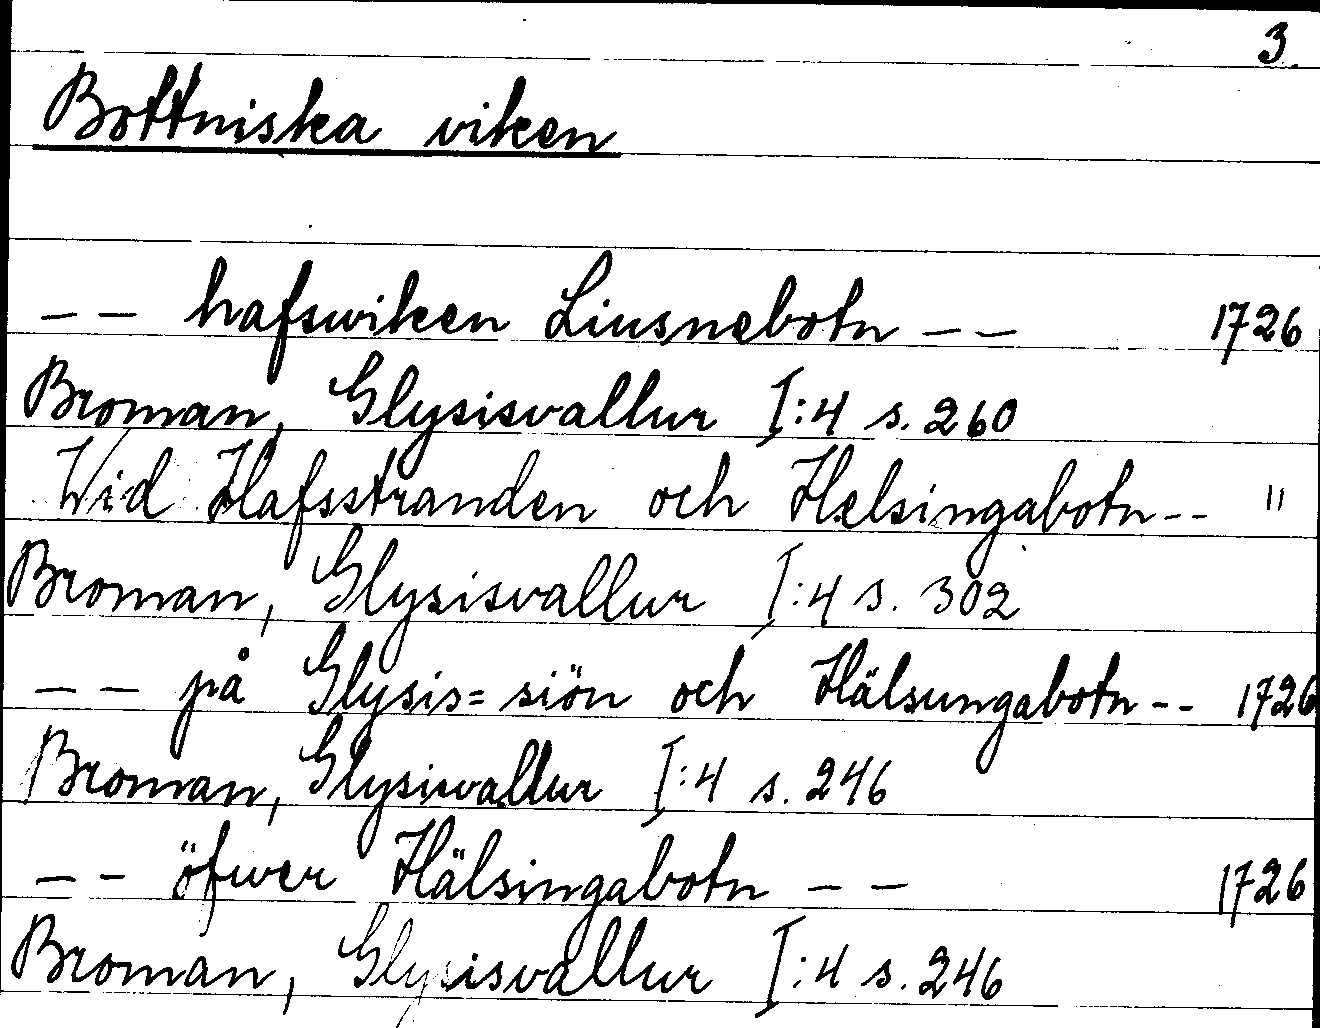 3.
Bottniska viken
-- hafswiken Liusnebotn -- 1726
Broman, Glysisvallur I:4 s. 260
Wid Hafsstranden och Helsingabotn-- "
Broman, Glysisvallur I:4 s. 302
-- på Glysis=siön och Hälsungabotn-- 1726
Broman, Glysisvallur I:4 s. 246
-- öfwer Hälsingabotn -- 1726
Broman, Glysisvallur I:4 s. 246